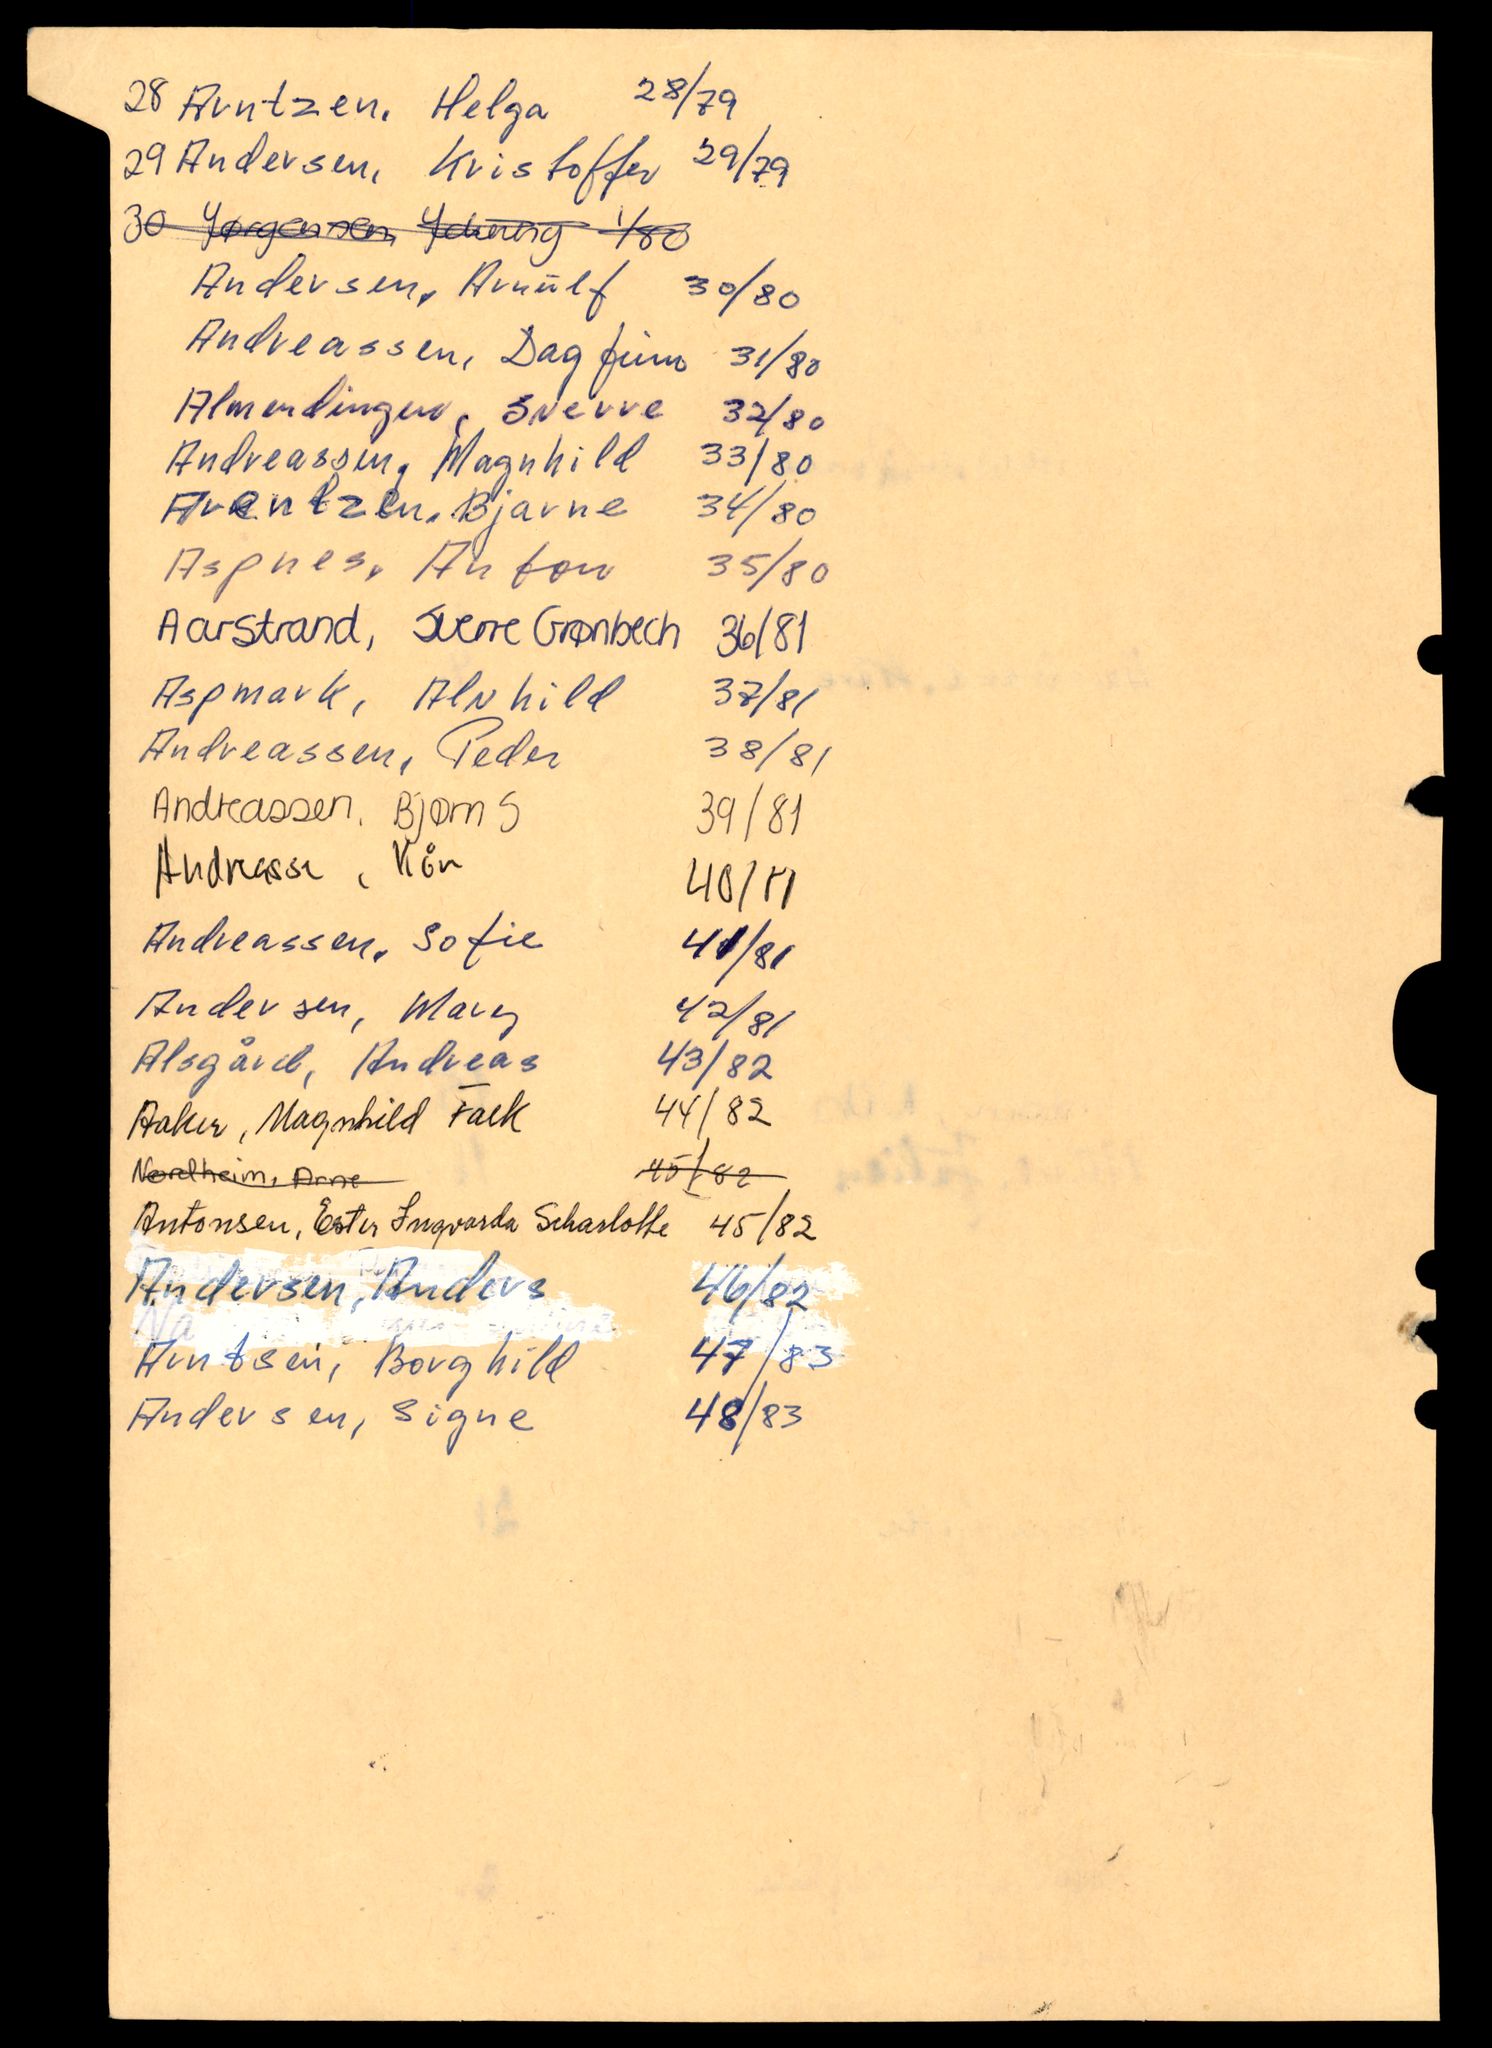 28 Arntzen, Helga 28/79
29 Andersen, Kristoffer 29/79
30 Jørgensen, 1/80
Andersen, Arnulf 30/80
Andreassen, Dagfinn 31/80
Almendingen, Sverre 32/80
Andreassen, Magnhild 33/80
Arentzen, Bjarne 34/80
Aspnes, Anton 35/80
Aarstrand, Sverre Grønbech 36/81
Aspmark, Alvhild 37/81
Andreassen, Peder 38/81
Andreassen, Bjørn S 39/81
Andreasse, Kår 40/81
Andreassen, Sofie 41/81
Andersen, Mary 42/81
Alsgård, Andreas 43/82
Aaker, Magnhild Falk 44/82
Nordheim, Arne 45/82
Antonsen, Ester Ingvarda Scharlotte 45/82
Andersen, Anders 46/82
Arntsen, Borghild 47/83
Andersen, Signe 48/83